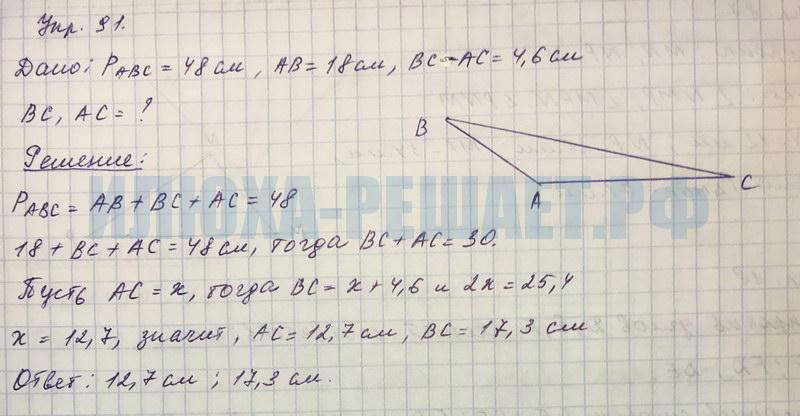 Упр. 91.
Дано: P_ABC = 48 см, AB = 18 см, BC - AC = 4,6 см
BC, AC = ?
Решение:
B
A
C
ИЛЮХА-РЕШАЕТ.РФ
P_ABC = AB + BC + AC = 48
18 + BC + AC = 48 см, тогда BC + AC = 30.
Пусть AC = x, тогда BC = x + 4,6 и 2x = 25,4
x = 12,7, значит, AC = 12,7 см, BC = 17,3 см
Ответ: 12,7 см; 17,3 см.